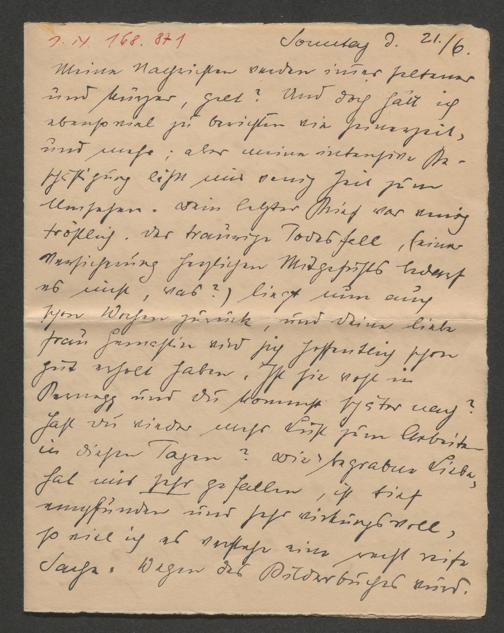 I. N. 168.871
Sonntag d. 21./6.
Meine Nachrichten werden immer seltener
und kürzer, gelt? Und doch hätt ich
ebensoviel zu berichten wie seinerzeit,
und mehr; aber meine intensive Be-
schäftigung läßt mir wenig Zeit zum
Umsehen. Dein letzter Brief war wenig
tröstlich. Der traurige Todesfall, (einer
Versicherung herzlichen Mitgefühls bedarf
es nicht, was?) liegt nun auch
schon Wochen zurück, und Deine liebe
Frau Gemahlin wird sich hoffentlich schon
gut erholt haben. Ist sie wohl in
Pernegg und Du kommst später nach?
Hast Du wieder mehr Lust zum Arbeiten
in diesen Tagen? Die "begrabne Liebe"
hat mir sehr gefallen, ist tief
empfunden und sehr wirkungsvoll,
so viel ich es verstehe eine recht reife
Sache. Wegen des Bilderbuches wird.